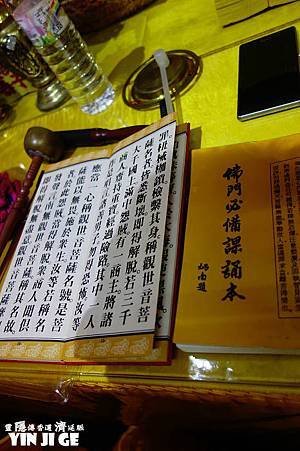 罪杻械枷鎖檢繫其身稱觀世音菩
薩名者皆悉斷壞即得解脫若三千
大千國土滿中怨賊有一商主將諸
商人齎持重寶經過險路其中一人
作是唱言諸善男子勿得恐怖汝等
應當一心稱觀世音菩薩名號是菩
薩能以無畏施於眾生汝等若稱名
者於此怨賊當得解脫眾商人聞俱
發聲言南無觀世音菩薩稱其名故
佛門必備課誦本
靈隱傳香道濟延脈
YIN JI GE